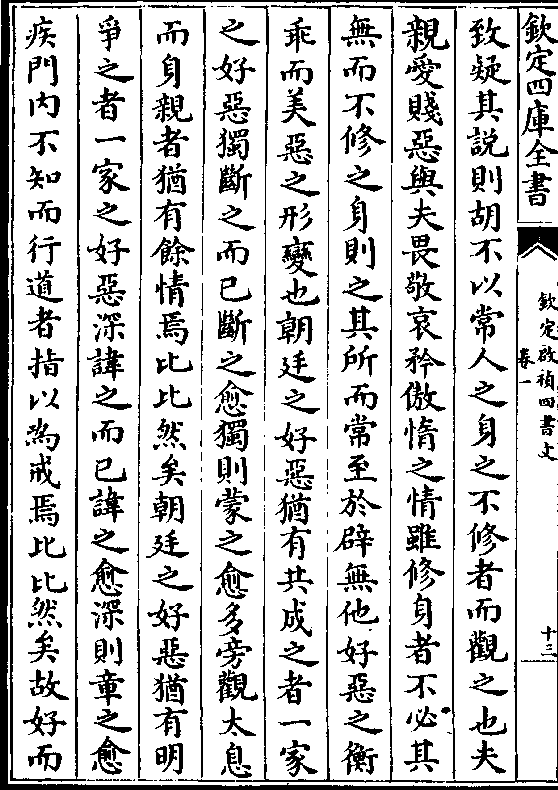 欽定四庫全書
欽定啟禎四書文
卷一
十三
致疑其說則胡不以常人之身之不修者而觀之也夫
親愛賤惡與夫畏敬哀矜傲惰之情雖修身者不必其
無而不修之身則之其所而常至於辟無他好惡之衡
乖而美惡之形變也朝廷之好惡猶有共成之者一家
之好惡獨斷之而已斷之愈獨則蒙之愈多旁觀太息
而身親者猶有餘情焉比比然矣朝廷之好惡猶有明
爭之者一家之好惡深諱之而已諱之愈深則章之愈
疾門內不知而行道者指以為戒焉比比然矣故好而